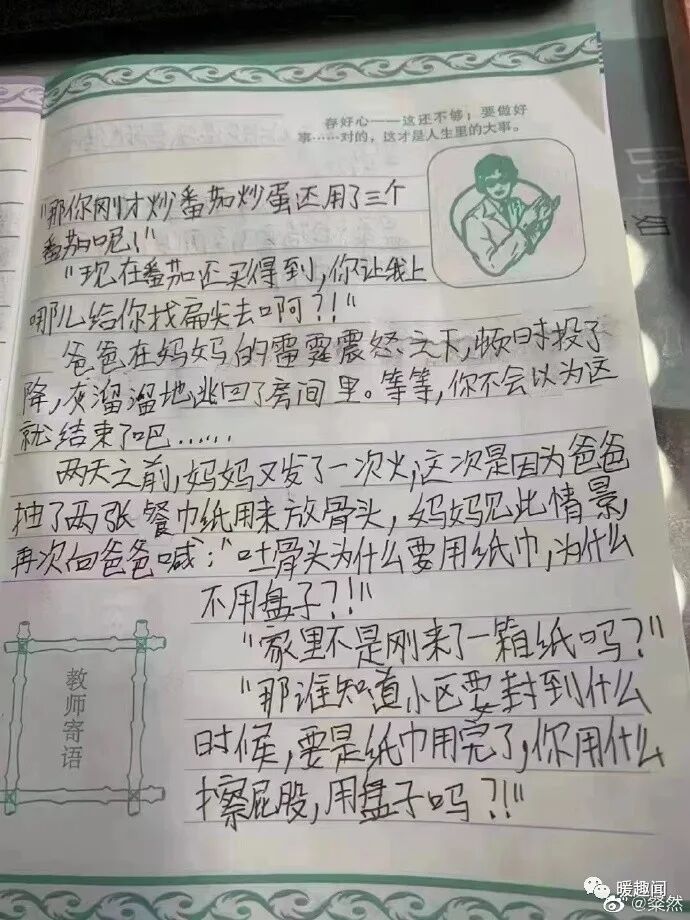 存好心——这还不够；要做好
事……对的，这才是人生里的大事。
"那你刚才炒番茄炒蛋还用了三个
番茄呢！"
"现在番茄还买得到，你让我上
哪儿给你找扁尖去啊？！"
爸爸在妈妈的雷霆震怒之下，顿时投了
降，灰溜溜地逃回了房间里。等等，你不会以为这
就结束了吧……
两天之前，妈妈又发了一次火，这次是因为爸爸
抽了两张餐巾纸用来放骨头，妈妈见此情景，
再次向爸爸喊："吐骨头为什么要用纸巾，为什么
不用盘子？！"
"家里不是刚来了一箱纸吗？"
"那谁知道小区要封到什么
时候，要是纸巾用完了，你用什么
擦屁股，用盘子吗？！"
教师寄语
暖趣闻
@粲然